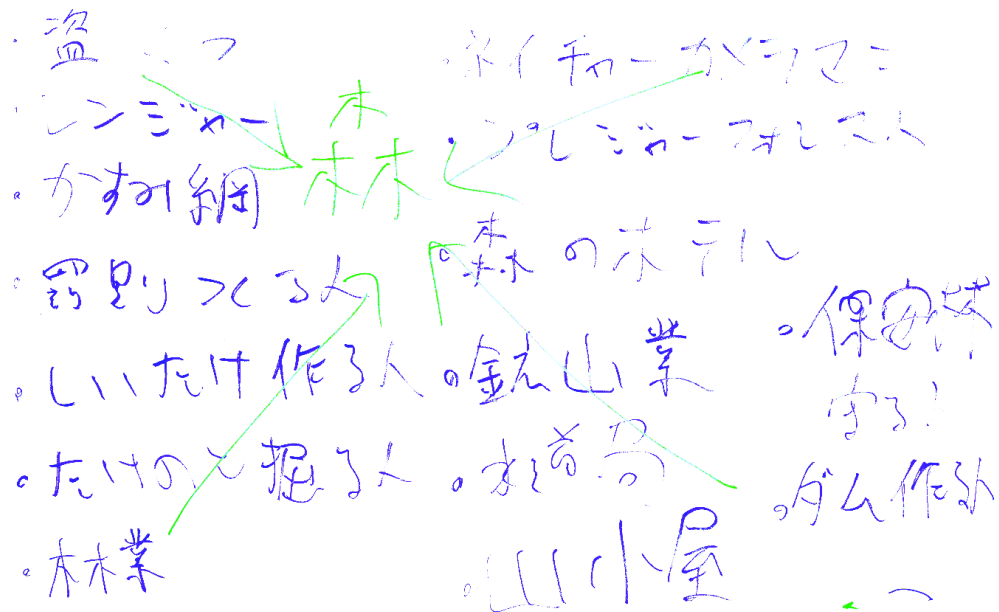 盗
レンジャー
かすみ網
罰則つくる人
しいたけ作る人
たけのこ掘る人
林業
森
ネイチャーカメラマン
プレジャーフォレスト
森のホテル
鉱山業
水道局
山小屋
保安林
守る人
ダム作る人